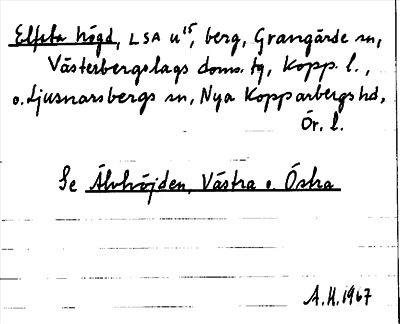 Elfsta högd, LSA u¹⁵, berg, Grangärde sn,
Västerbergslags doms. tg, Kopp. l.,
o. Ljusnarsbergs sn, Nya Kopparbergs hd,
Ör. l.
Se Älvhöjden, Västra o. Östra
A.H. 1967